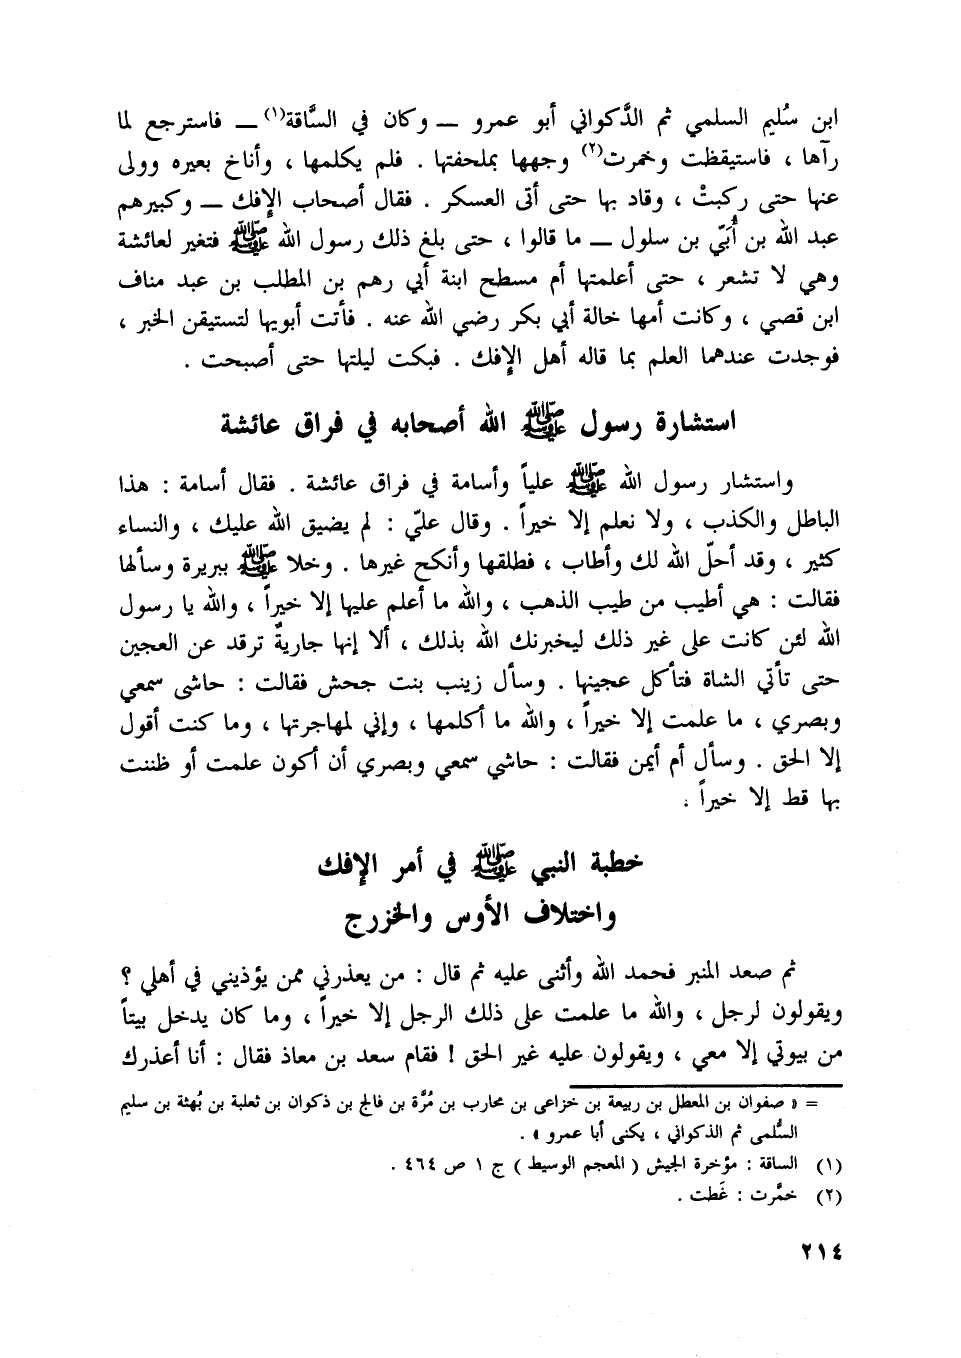 ابن سُليم السلمي ثم الذَّكواني أبو عمرو ــ وكان في السَّاقة(١) ــ فاسترجع لما
رآها ، فاستيقظت وخمرت(٢) وجهها بملحفتها . فلم يكلمها ، وأناخ بعيره وولى
عنها حتى ركبتْ ، وقاد بها حتى أتى العسكر . فقال أصحاب الإفك ــ وكبيرهم
عبد الله بن أُبَيّ بن سلول ــ ما قالوا ، حتى بلغ ذلك رسول الله ﷺ فتغير لعائشة
وهي لا تشعر ، حتى أعلمتها أم مسطح ابنة أبي رهم بن المطلب بن عبد مناف
ابن قصي ، وكانت أمها خالة أبي بكر رضي الله عنه . فأتت أبويها لتستيقن الخبر ،
فوجدت عندهما العلم بما قاله أهل الإفك . فبكت ليلتها حتى أصبحت .
استشارة رسول ﷺ الله أصحابه في فراق عائشة
واستشار رسول الله ﷺ علياً وأسامة في فراق عائشة . فقال أسامة : هذا
الباطل والكذب ، ولا نعلم إلا خيراً . وقال عليّ : لم يضيق الله عليك ، والنساء
كثير ، وقد أحلّ الله لك وأطاب ، فطلقها وأنكح غيرها . وخلا ﷺ ببريرة وسألها
فقالت : هي أطيب من طيب الذهب ، والله ما أعلم عليها إلا خيراً ، والله يا رسول
الله لئن كانت على غير ذلك ليخبرنك الله بذلك ، ألا إنها جاريةٌ ترقد عن العجين
حتى تأتي الشاة فتأكل عجينها . وسأل زينب بنت جحش فقالت : حاشى سمعي
وبصري ، ما علمت إلا خيراً ، والله ما أكلمها ، وإني لمهاجرتها ، وما كنت أقول
إلا الحق . وسأل أم أيمن فقالت : حاشي سمعي وبصري أن أكون علمت أو ظننت
بها قط إلا خيراً .
خطبة النبي ﷺ في أمر الإفك
واختلاف الأوس والخزرج
ثم صعد المنبر فحمد الله وأثنى عليه ثم قال : من يعذرني ممن يؤذيني في أهلي ؟
ويقولون لرجل ، والله ما علمت على ذلك الرجل إلا خيراً ، وما كان يدخل بيتاً
من بيوتي إلا معي ، ويقولون عليه غير الحق ! فقام سعد بن معاذ فقال : أنا أعذرك
= « صفوان بن المعطل بن ربيعة بن خزاعى بن محارب بن مُرَّة بن فالج بن ذكوان بن ثعلبة بن بُهثة بن سليم
السُّلمى ثم الذكواني ، يكنى أبا عمرو » .
(١) الساقة : مؤخرة الجيش ( المعجم الوسيط ) ج ١ ص ٤٦٤ .
(٢) خمَّرت : غَطت .
٢١٤